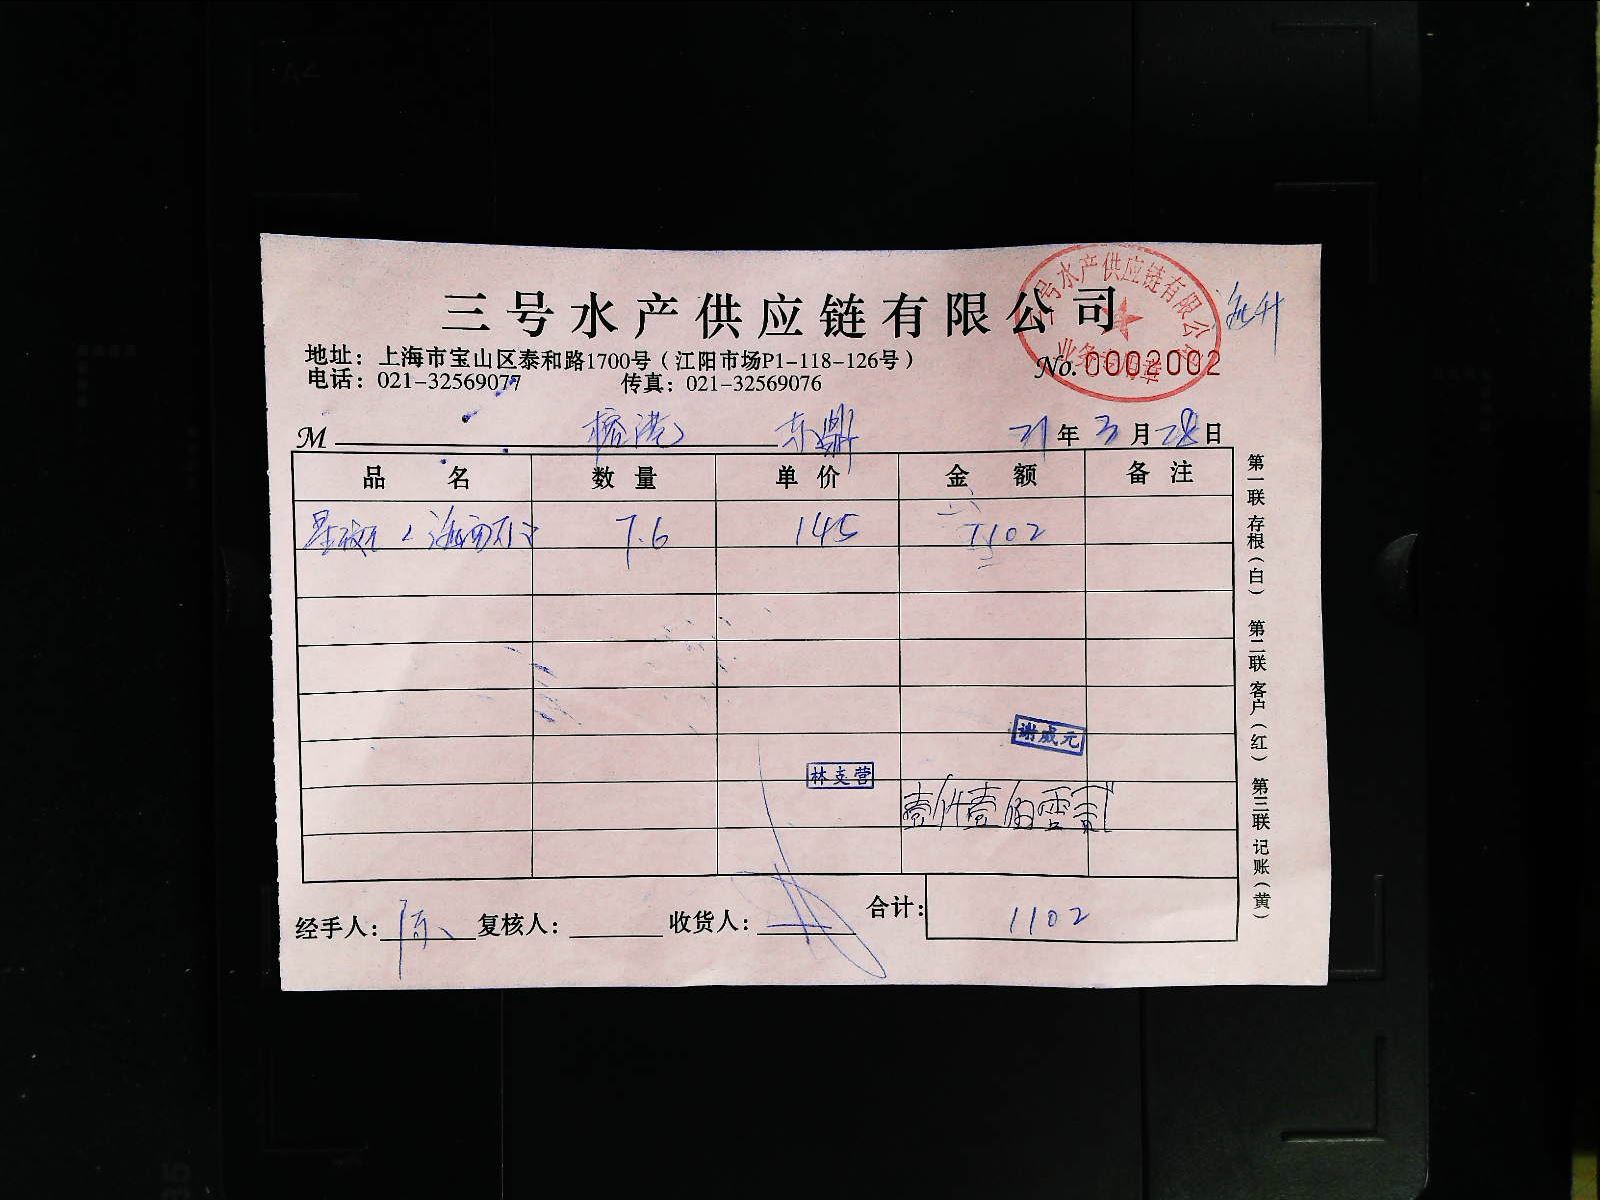 三号水产供应链有限公司
三号水产供应链有限公司
业务专用章
地址：上海市宝山区泰和路1700号（江阳市场P1-118-126号）
电话：021-32569077 传真：021-32569076
No. 0002002
M 榕港 东鼎 21年3月28日
品名 数量 单价 金额 备注
7.6 145 1102
谢威元
林支营
壹仟壹佰零贰
经手人：陈 复核人： 收货人： 合计：1102
第一联 存根（白） 第二联 客户（红） 第三联 记账（黄）